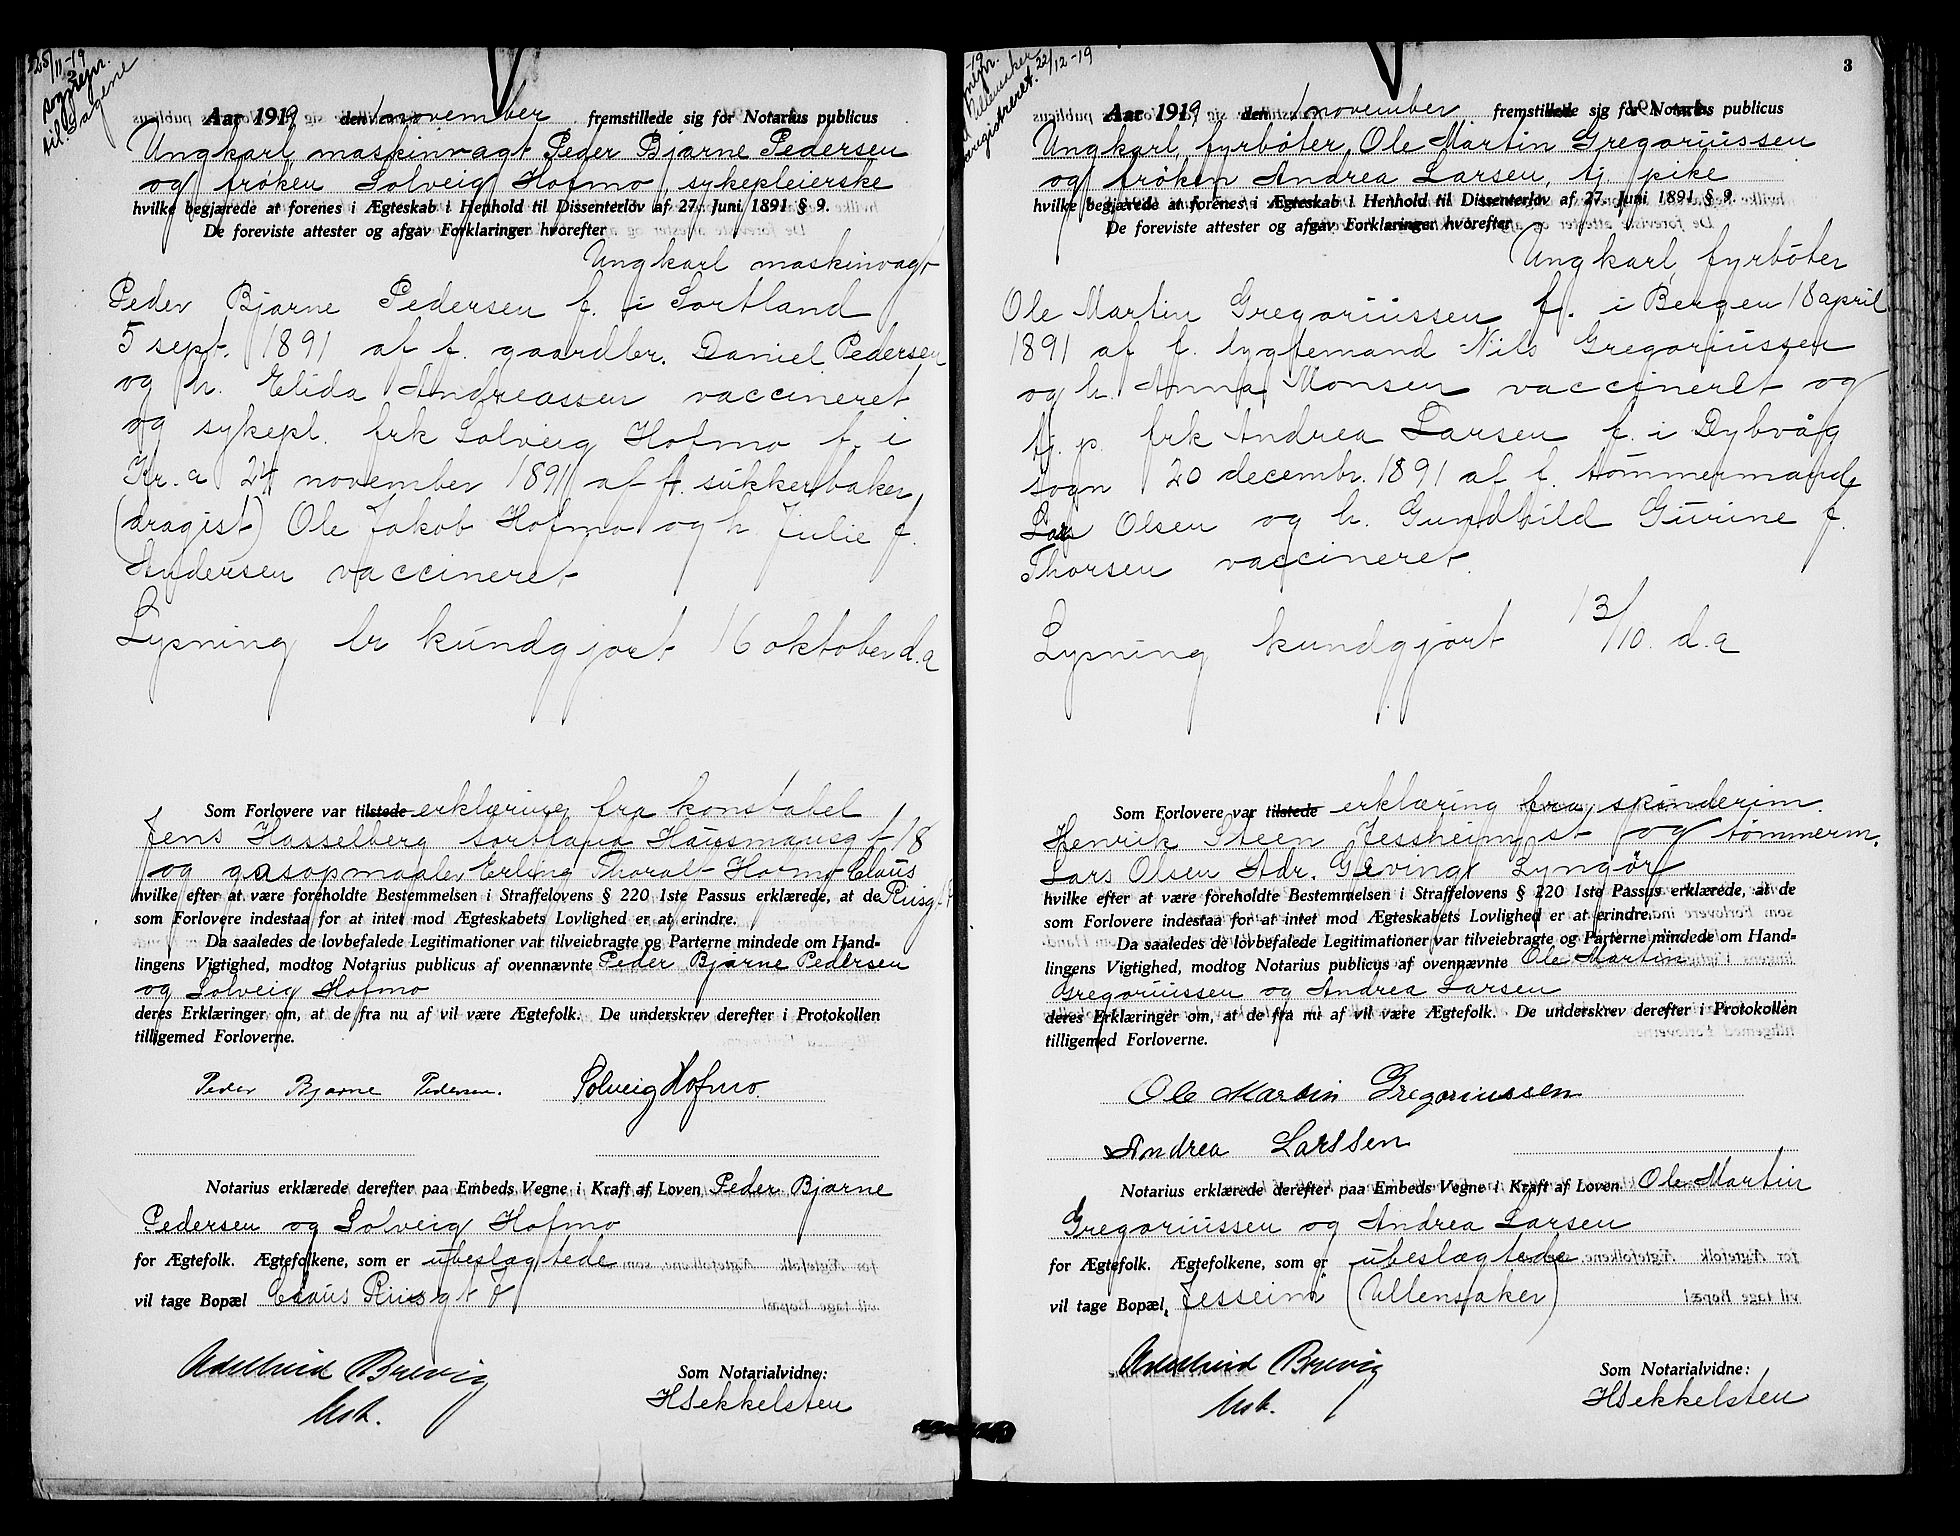 25/11-19
sogneprr.
til Sagene
Aar 1919 den 1 november fremstillede sig for Notarius publicus
Ungkarl maskinvagt Peder Bjarne Pedersen
og frøken Solveig Hofmo, sykepleierske
hvilke begjærede at forenes i Ægteskab i Henhold til Dissenterlov af 27. Juni 1891 § 9.
De foreviste attester og afgav Forklaringer hvorefter
Ungkarl maskinvagt
Peder Bjarne Pedersen f. i Sortland
5 sept. 1891 af f. gaardbr. Daniel Pedersen
og h. Elida Andreassen vaccineret
og sykepl. frk Solveig Hofmo f. i
Kr.a 24 november 1891 af f. sukkerbaker
(dragist) Ole Jakob Hofmo og h. Julie f.
Andersen vaccineret
Lysning er kundgjort 16 oktober d.a
Som Forlovere var tilstede erklæring fra konstabel
Jens Hasselberg Sortland Hausmansgt 18
og gasopmaaler Erling Thoralf Hofmo Claus
hvilke efter at være foreholdte Bestemmelsen i Straffelovens § 220 1ste Passus erklærede, at de Riisgt 7
som Forlovere indestaa for at intet mod Ægteskabets Lovlighed er at erindre.
Da saaledes de lovbefalede Legitimationer var tilveiebragte og Parterne mindede om Hand-
lingens Vigtighed, modtog Notarius publicus af ovennævnte Peder Bjarne Pedersen
og Solveig Hofmo
deres Erklæringer om, at de fra nu af vil være Ægtefolk. De underskrev derefter i Protokollen
tilligemed Forloverne.
Peder Bjarne Pedersen. Solveig Hofmo.
Notarius erklærede derefter paa Embeds Vegne i Kraft af Loven Peder Bjarne
Pedersen og Solveig Hofmo
for Ægtefolk. Ægtefolkene, som er ubeslægtede
vil tage Bopæl Claus Riisgt 7
Adelheid Brevig
Som Notarialvidne:
HSekkelsten
3
-19
Ullensaker
registreret. 22/12-19
Aar 1919 den 1 november fremstillede sig for Notarius publicus
Ungkarl, fyrbøter, Ole Martin Gregoriussen
og frøken Andrea Larsen, tj. pike
hvilke begjærede at forenes i Ægteskab i Henhold til Dissenterlov af 27. Juni 1891 § 9.
De foreviste attester og afgav Forklaringer hvorefter
Ungkarl, fyrbøter
Ole Martin Gregoriussen f. i Bergen 18 april
1891 af f. lygtemand Nils Gregoriussen
og h. Anna Monsen vaccineret og
tj. p. frk Andrea Larsen f. i Dybvåg
sogn 20 decembr. 1891 af f. tømmermand
Lars Olsen og h. Gundhild Gurine f.
Thorsen vaccineret.
Lysning kundgjort 13/10. d.a
Som Forlovere var tilstede erklæring fra spinderim.
Henrik Steen Jessheim st og tømmerm.
Lars Olsen Adr. Gjeving Lyngør
hvilke efter at være foreholdte Bestemmelsen i Straffelovens § 220 1ste Passus erklærede, at de
som Forlovere indestaa for at intet mod Ægteskabets Lovlighed er at erindre.
Da saaledes de lovbefalede Legitimationer var tilveiebragte og Parterne mindede om Hand-
lingens Vigtighed, modtog Notarius publicus af ovennævnte Ole Martin
Gregoriussen og Andrea Larsen
deres Erklæringer om, at de fra nu af vil være Ægtefolk. De underskrev derefter i Protokollen
tilligemed Forloverne.
Ole Martin Gregoriussen
Andrea Larssen
Notarius erklærede derefter paa Embeds Vegne i Kraft af Loven Ole Martin
Gregoriussen og Andrea Larsen
for Ægtefolk. Ægtefolkene, som er ubeslægtede
vil tage Bopæl Jesseim (Ullensaker)
Adelheid Brevig
Som Notarialvidne:
HSekkelsten